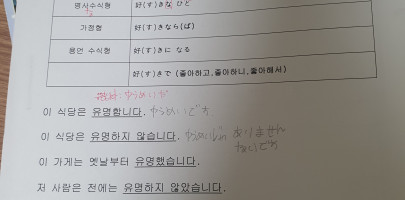 명사수식형 好(す)きな ひと
가정형 好(す)きなら(ば)
용언 수식형 好(す)きに なる
好(す)きで (좋아하고,좋아하니,좋아해서)
이 식당은 유명합니다. ゆうめいです
이 식당은 유명하지 않습니다. ゆうめいじゃ ありません
ないです
이 가게는 옛날부터 유명했습니다.
저 사람은 전에는 유명하지 않았습니다.